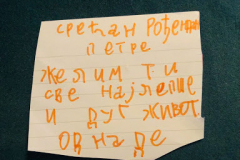 СРЕЋАН РОЂЕНДАН
ПЕТРЕ
ЖЕЛИМ ТИ
СВЕ НАЈЛЕПШЕ
И ДУГ ЖИВОТ
ОД НАДЕ